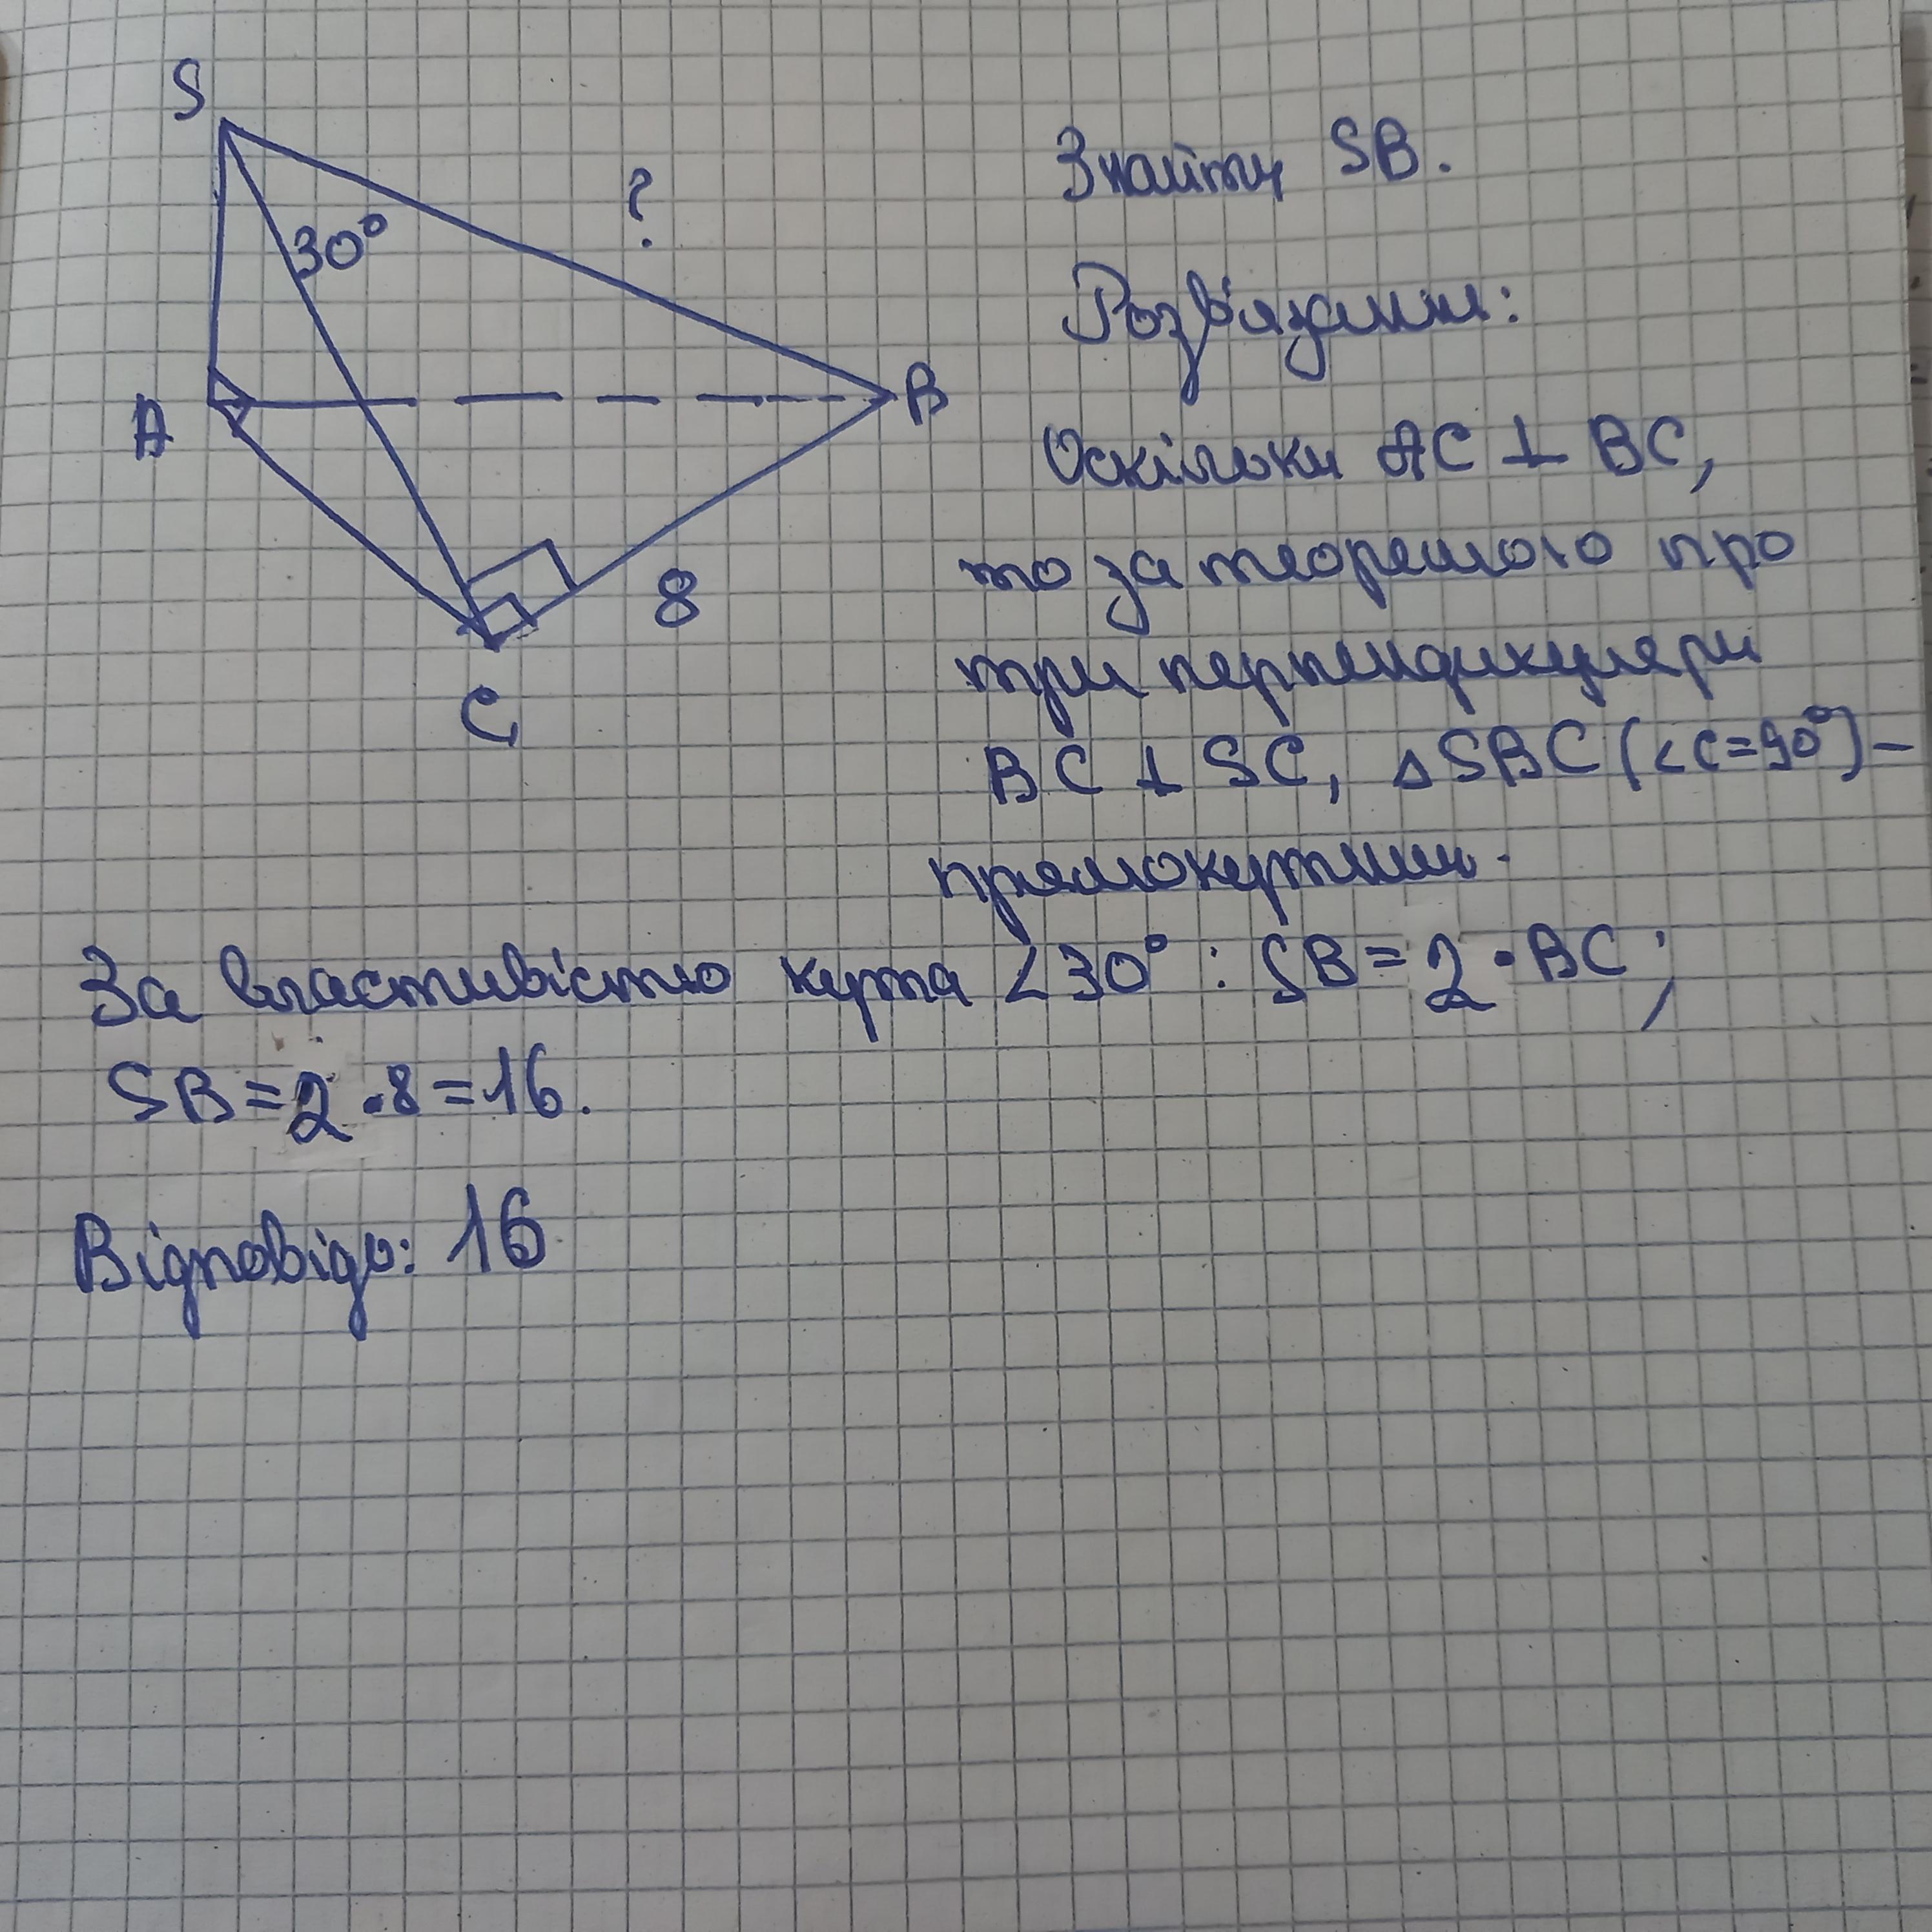 S
30°
?
A
B
8
C
Знайти SB.
Розв'язання:
Оскільки AC ⊥ BC,
то за теоремою про
три перпендикуляри
BC ⊥ SC, ∆SBC (∠C=90°) –
прямокутний.
За властивістю кута ∠30° : SB = 2 • BC ;
SB = 2 • 8 = 16.
Відповідь: 16